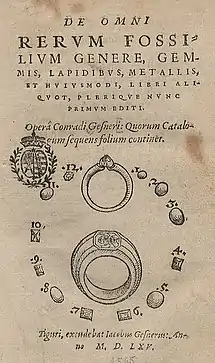 DE OMNI
RERVM FOSSI-
LIVM GENERE, GEM-
MIS, LAPIDIBVS, METALLIS,
ET HVIVSMODI, LIBRI ALI-
QVOT, PLERIQVE NVNC
PRIMVM EDITI.
Operâ Conradi Gesneri: Quorum Catalo-
gum sequens folium continet.
12.
1.
11.
2.
3.
10.
4.
9.
8.
5.
7.
6.
Tiguri, excudebat Iacobus Gesnerus: An-
no M. D. LXV.
1565